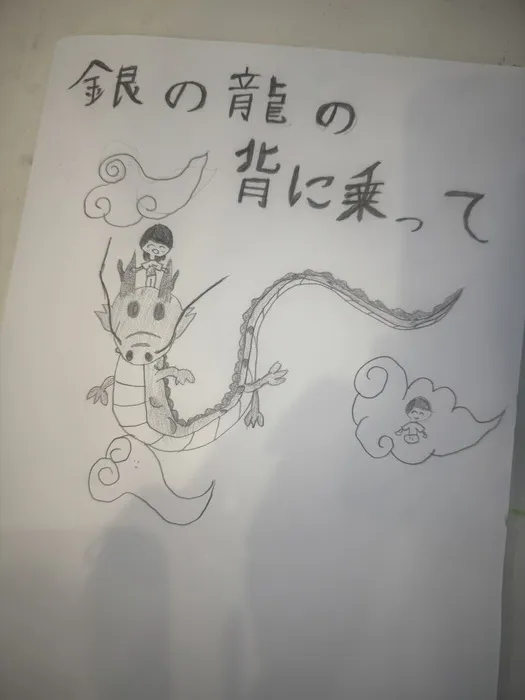 銀の龍の
背に乗って